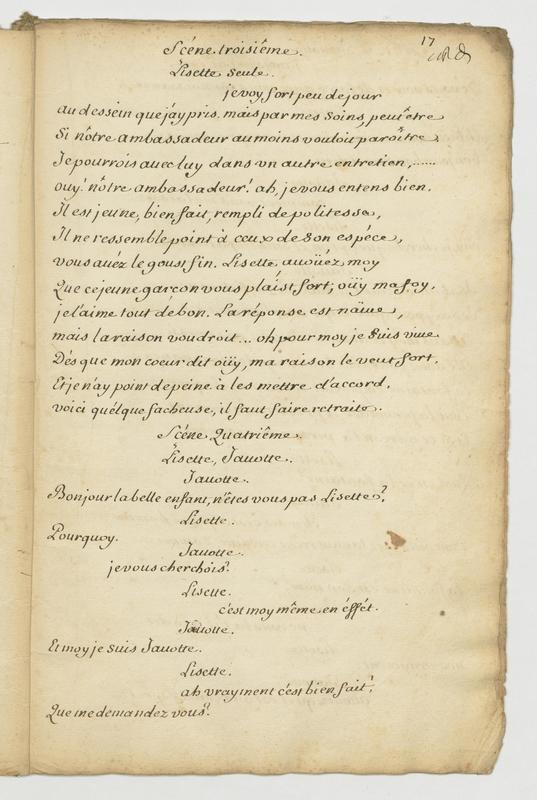 17
Scéne troisiême.
Lisette seule.
je voy fort peu de jour
au dessein que j'ay pris. mais par mes soins, peut être
Si nôtre ambassadeur au moins vouloit paroître,
Je pourrois avec luy dans un autre entretien, ......
ouy! nôtre ambassadeur! ah, je vous entens bien.
Il est jeune, bien fait, rempli de politesse,
Il ne ressemble point à ceux de son espéce,
vous avéz le goust fin. Lisette avoüéz moy
Que ce jeune garcon vous plaist fort; oüy ma foy.
je l'aime tout de bon. La réponse est näive,
mais la raison voudroit... oh pour moy je suis vive
Dés que mon coeur dit oüy, ma raison le veut fort.
Et je n'ay point de peine à les mettre d'accord.
voici quélque facheuse, il faut faire retraite.
Scéne Quatriême.
Lisette, Javotte.
Javotte.
Bonjour la belle enfant, n'étes vous pas Lisette?
Lisette.
Pourquoy.
Javotte.
je vous cherchois.
Lisette.
c'est moy même en éffét.
Javotte.
Et moy je suis Javotte.
Lisette.
ah vrayment c'est bien fait!
Que me demandez vous?